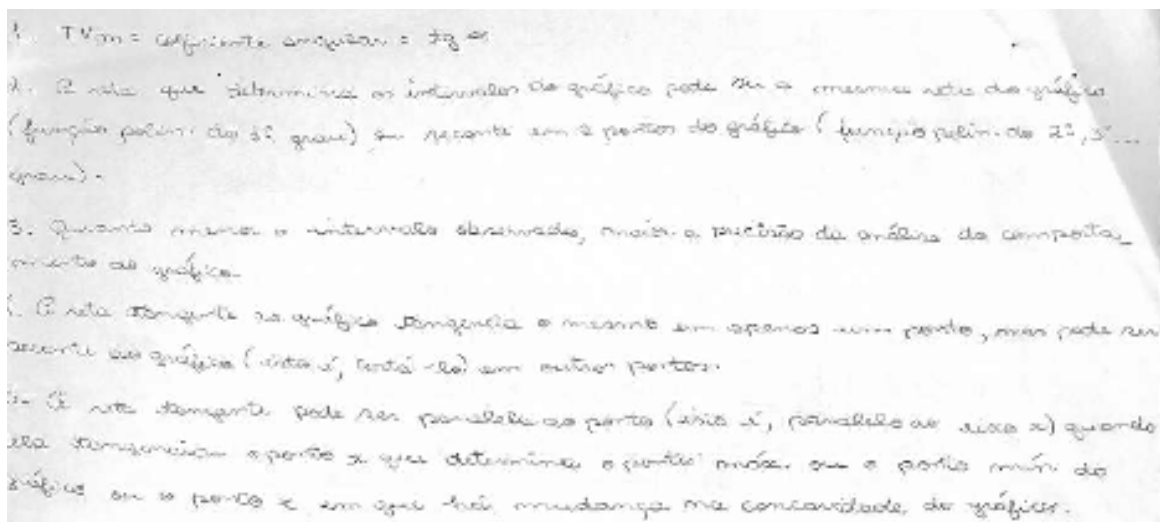 1. TVm = coeficiente angular = tg α
2. A reta que determina os intervalos do gráfico pode ser a mesma reta do gráfico
(função polin. do 1º grau) ou secante em 2 pontos do gráfico (função polin. do 2º, 3º...
grau).
3. Quanto menor o intervalo observado, maior a precisão da análise do comporta_
mento do gráfico.
A reta tangente ao gráfico tangencia o mesmo em apenas um ponto, mas pode ser
secante ao gráfico (isto é, cortá-lo) em outros pontos.
A reta tangente pode ser paralela ao ponto (isto é, paralela ao eixo x) quando
ela tangencia o ponto x que determina o ponto máx. ou o ponto mín. do
gráfico ou o ponto x em que há mudança na concavidade do gráfico.